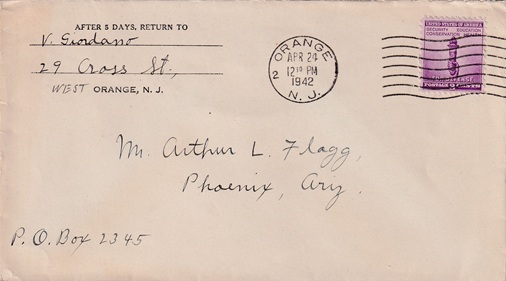 AFTER 5 DAYS, RETURN TO
V. Giordano
29 Cross St.,
WEST ORANGE, N. J.
ORANGE
APR 24
1942
N. J.
2
UNITED STATES OF AMERICA
SECURITY EDUCATION
CONSERVATION HEALTH
FOR DEFENSE
POSTAGE 3 CENTS
Mr. Arthur L. Flagg,
Phoenix, Ariz.
P. O. Box 2345